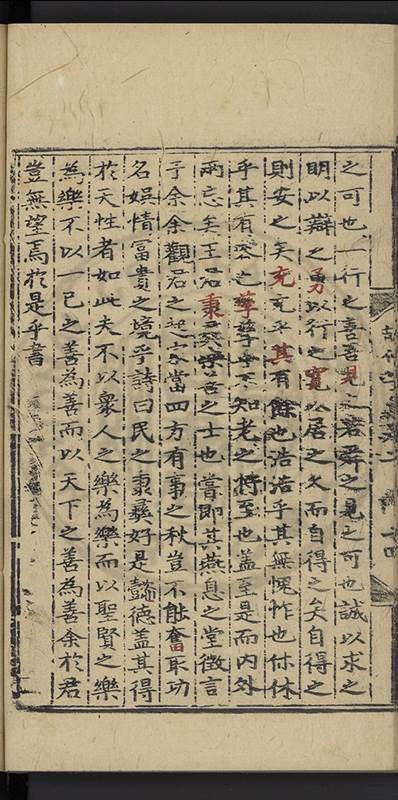 之可也一行之善吾見之若舜之見之可也誠以求之
明以辯之勇以行之寬以居之久而自得之矣自得之
則安之矣充充乎其有餘也浩浩乎其無愧怍也休休
乎其有容也孳孳乎不知老之將至也盖至是而内外
兩忘矣王君秉彞好善之士也嘗即其燕息之堂徴言
于余余觀君之起家當四方有事之秋豈不能奮取功
名娯情富貴之境乎詩曰民之秉彞好是懿德盖其得
於天性者如此夫不以衆人之樂為樂而以聖賢之樂
為樂不以一己之善為善而以天下之善為善余於君
豈無望焉於是乎書